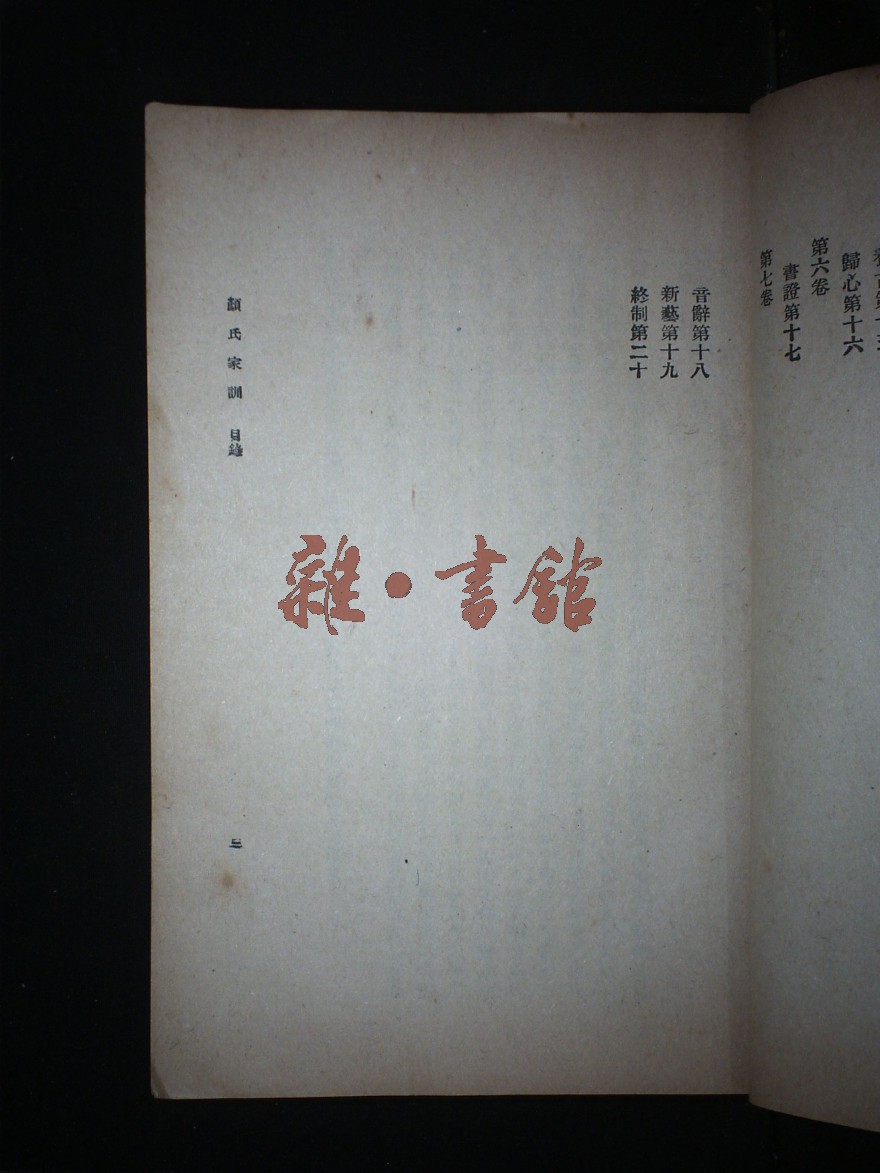 歸心第十六
第六卷
書證第十七
第七卷
音辭第十八
新藝第十九
終制第二十
顏氏家訓 目錄
三
雜·書館